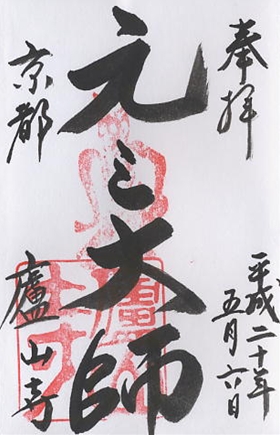 奉拝
平成二十年
五月六日
元三大師
京都
廬山寺